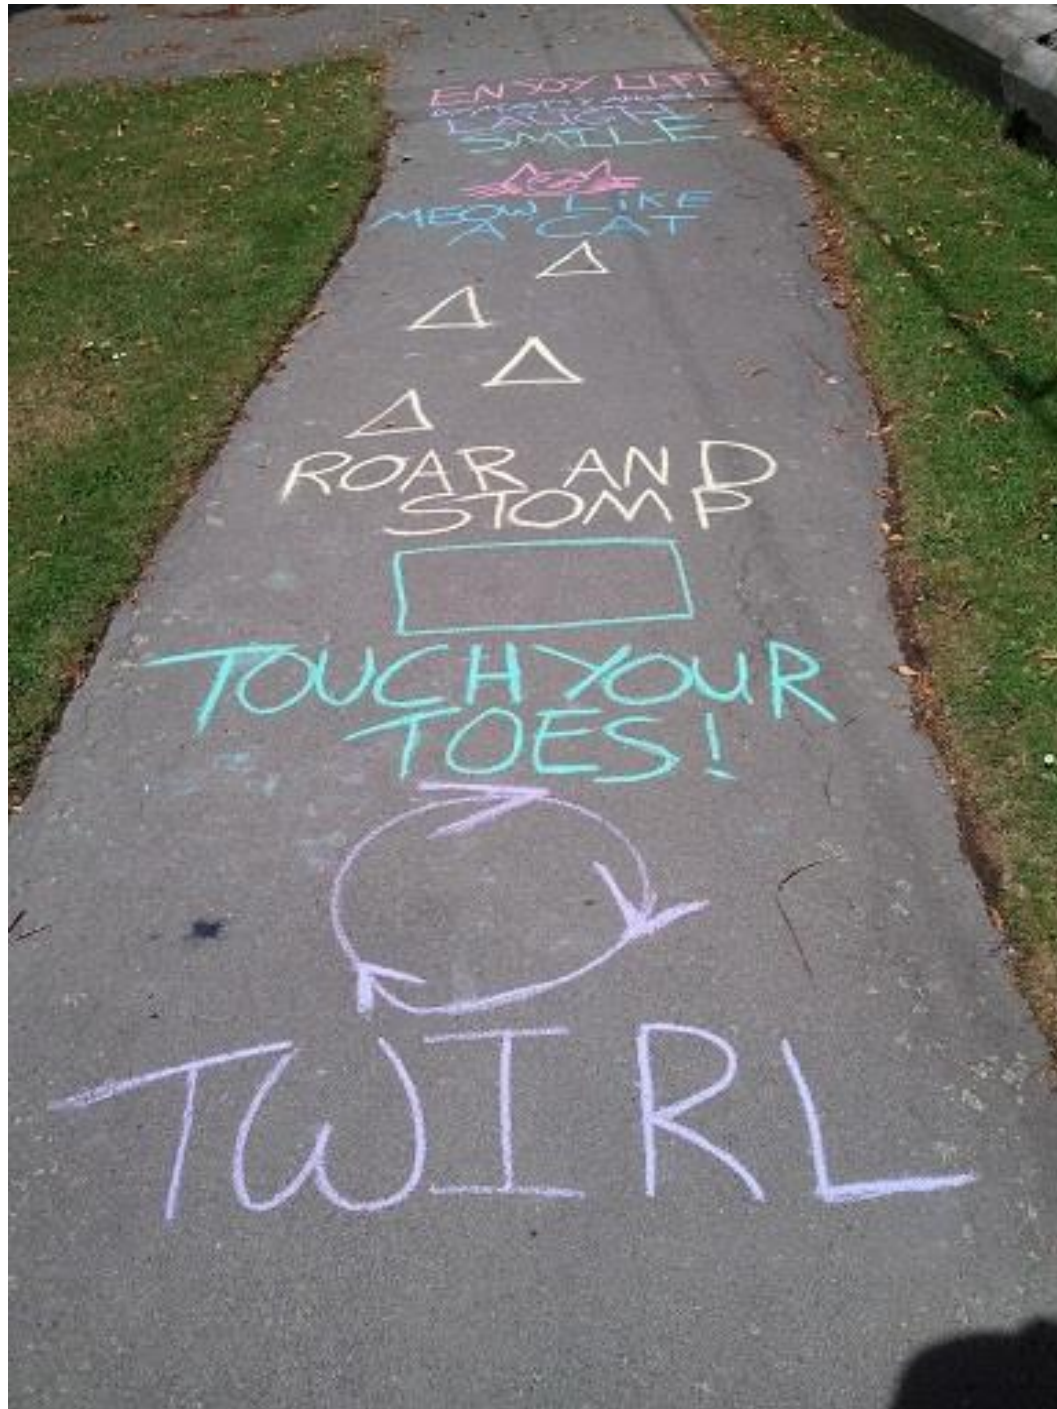 ENJOY LIFE
LAUGH
SMILE
MEOW LIKE
A CAT
ROAR AND
STOMP
TOUCH YOUR
TOES!
TWIRL